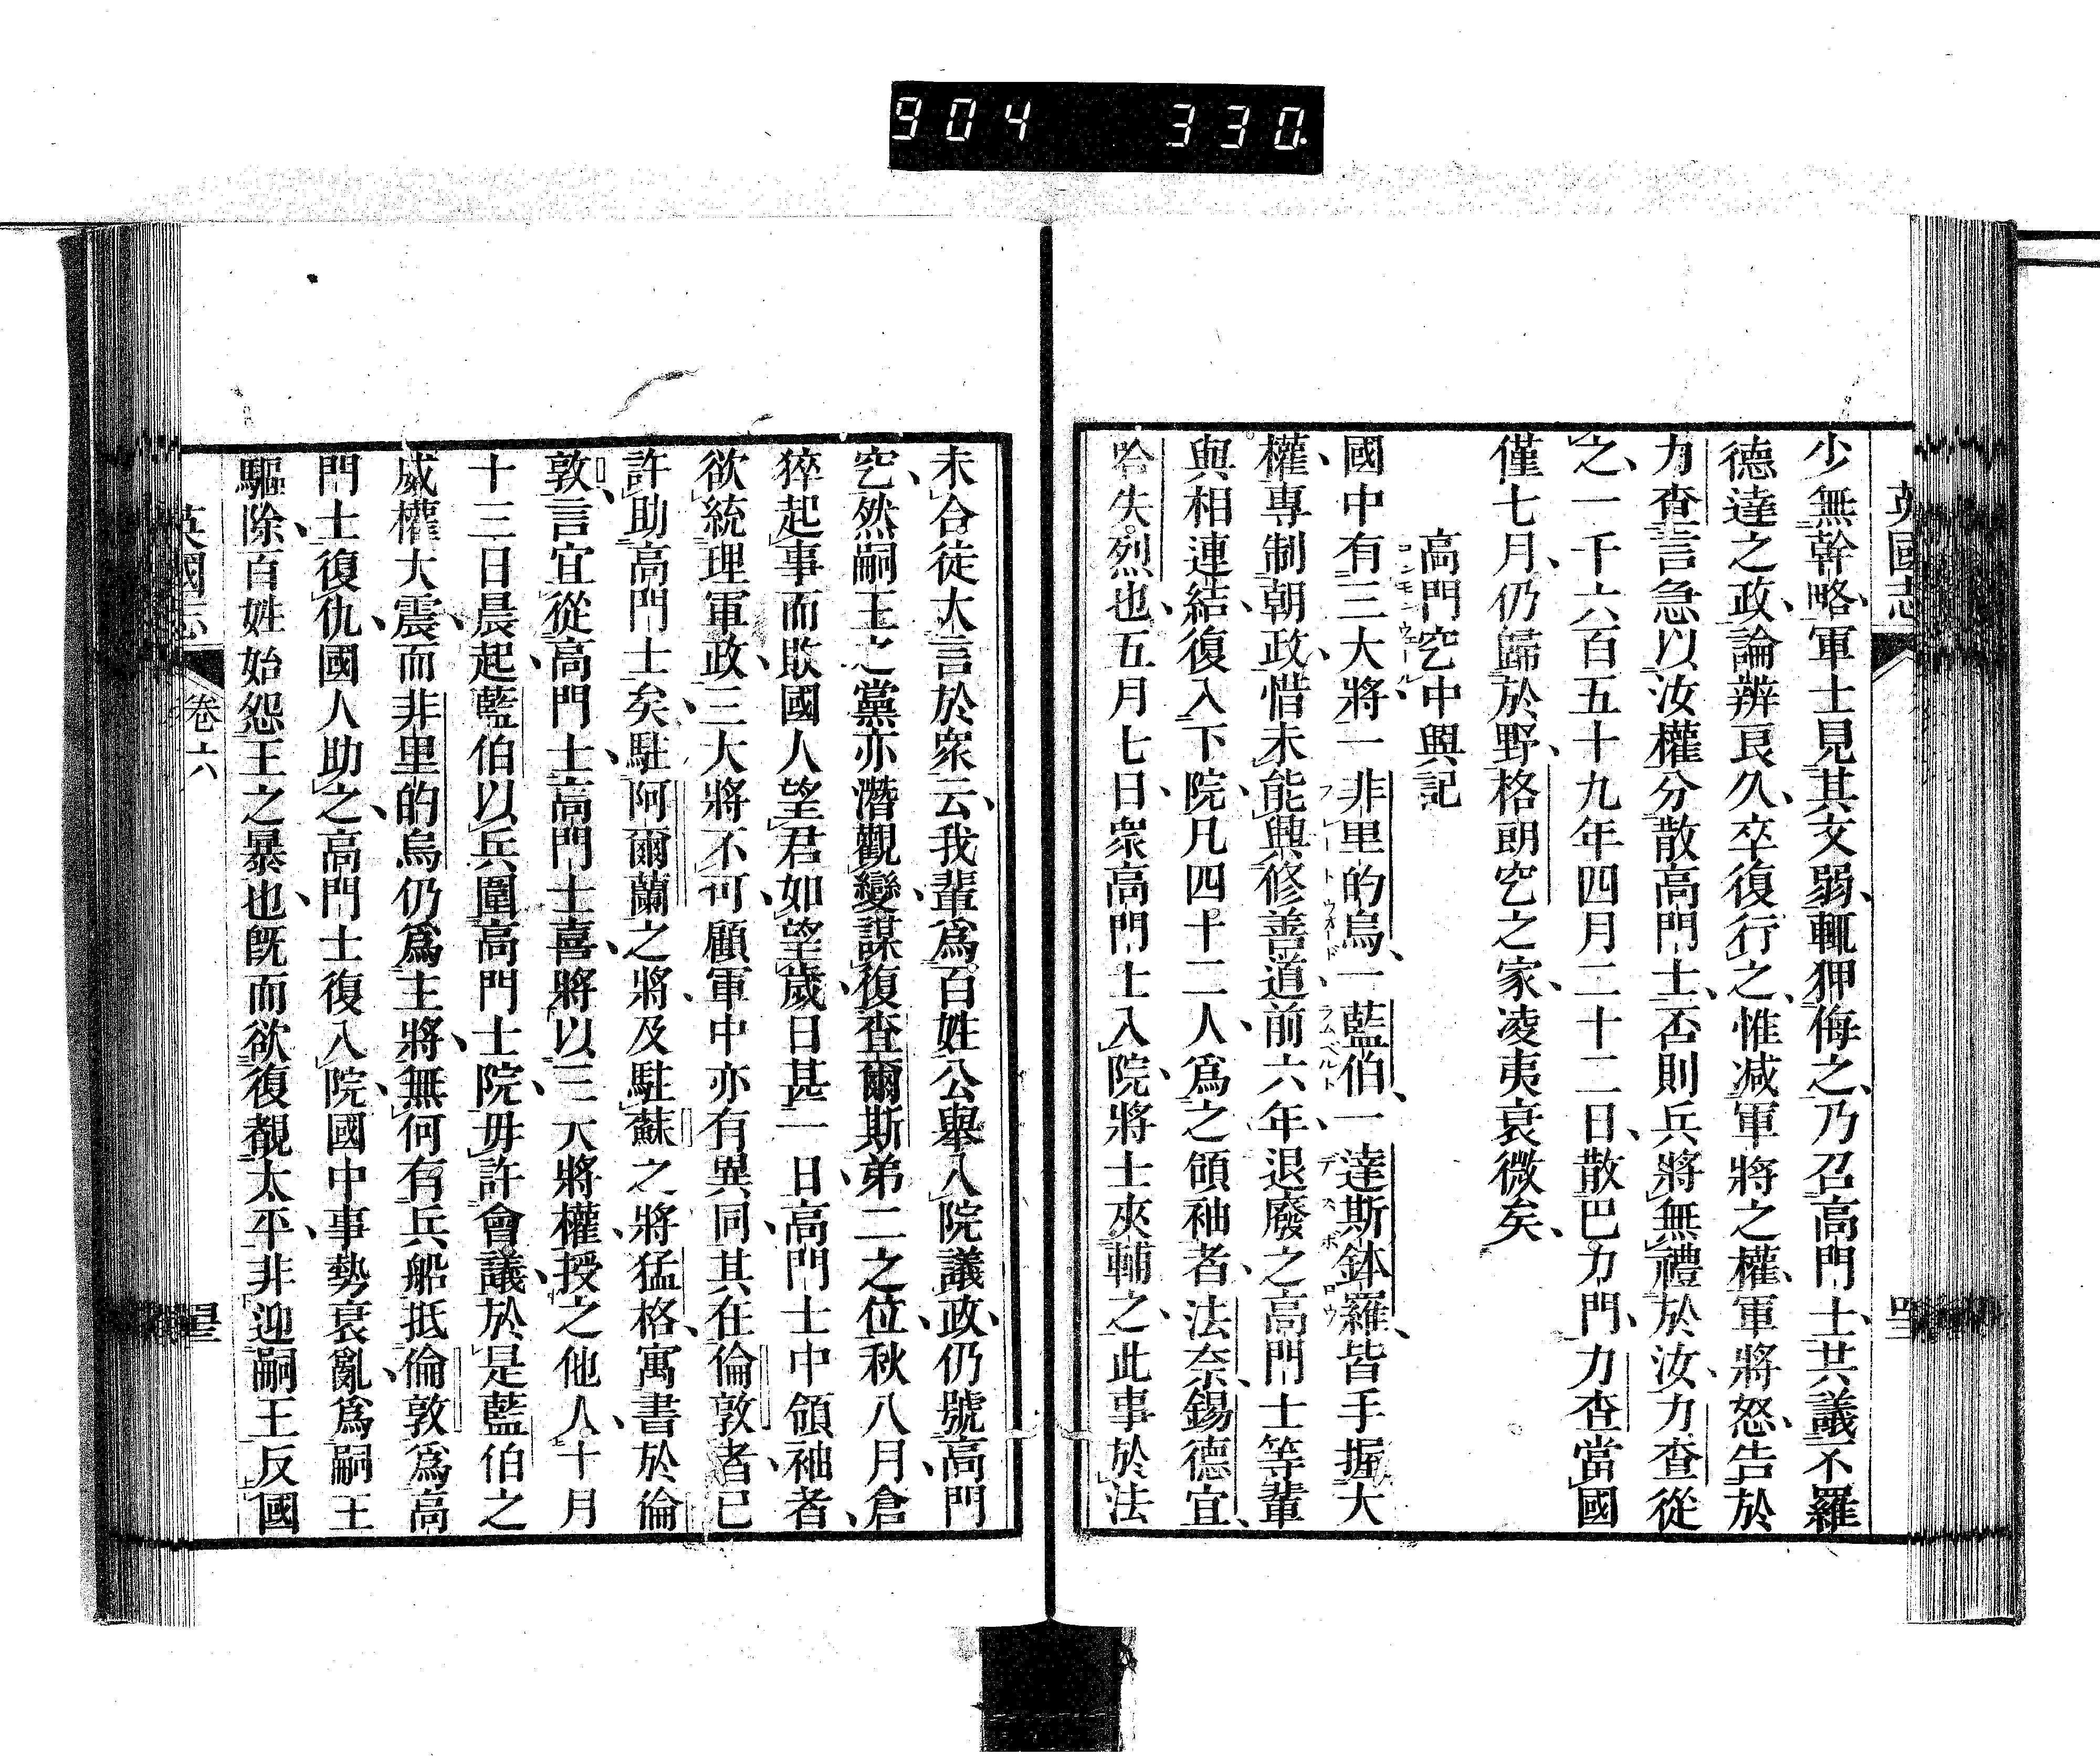 904 330.
英國志
少無幹略、軍士見其文弱、輒狎侮之、乃召高門士、共議、不羅
德達之政、論辨良久、卒復行之、惟減軍將之權、軍將怒、告於
力查言急以汝權分散高門士、否則兵將無禮於汝、力查從
之、一千六百五十九年四月二十二日、散巴力門、力查當國
僅七月、仍歸於野、格朗空之家、凌夷衰微矣、
高門空中興記
コンモンウェール
國中有三大將、一非里的烏、一藍伯、一達斯鉢羅、皆手握大
フリートウオード、ラムベルト、デスボロウ
權、專制朝政、惜未能興修善道、前六年、退廢之高門士等輩
與相連結、復入下院、凡四十二人、爲之領袖者、法奈、錫德宜、
哈失烈也、五月七日、衆高門士入院、將士夾輔之、此事於法
未合、徒大言於衆云、我輩爲百姓公舉、入院議政、仍號高門
空、然嗣王之黨亦潛觀變、謀復查爾斯弟二之位、秋八月、倉
猝起事而敗、國人望君如望歲、日甚一日、高門士中領袖者、
欲統理軍政、三大將不可、顧軍中亦有異同、其在倫敦者、已
許助高門士矣、駐阿爾蘭之將、及駐蘇之將猛格、寓書於倫
敦、言宜從高門士、高門士喜、將以三大將權、授之他人、十月
十三日晨起、藍伯以兵圍高門士院、毋許會議、於是藍伯之
威權大震、而非里的烏仍爲主將、無何、有兵船抵倫敦、爲高
門士復仇、國人助之、高門士復入院、國中事勢衰亂、爲嗣王
驅除、百姓始怨王之暴也、旣而欲復覩太平、非迎嗣王反國
英國志 卷六